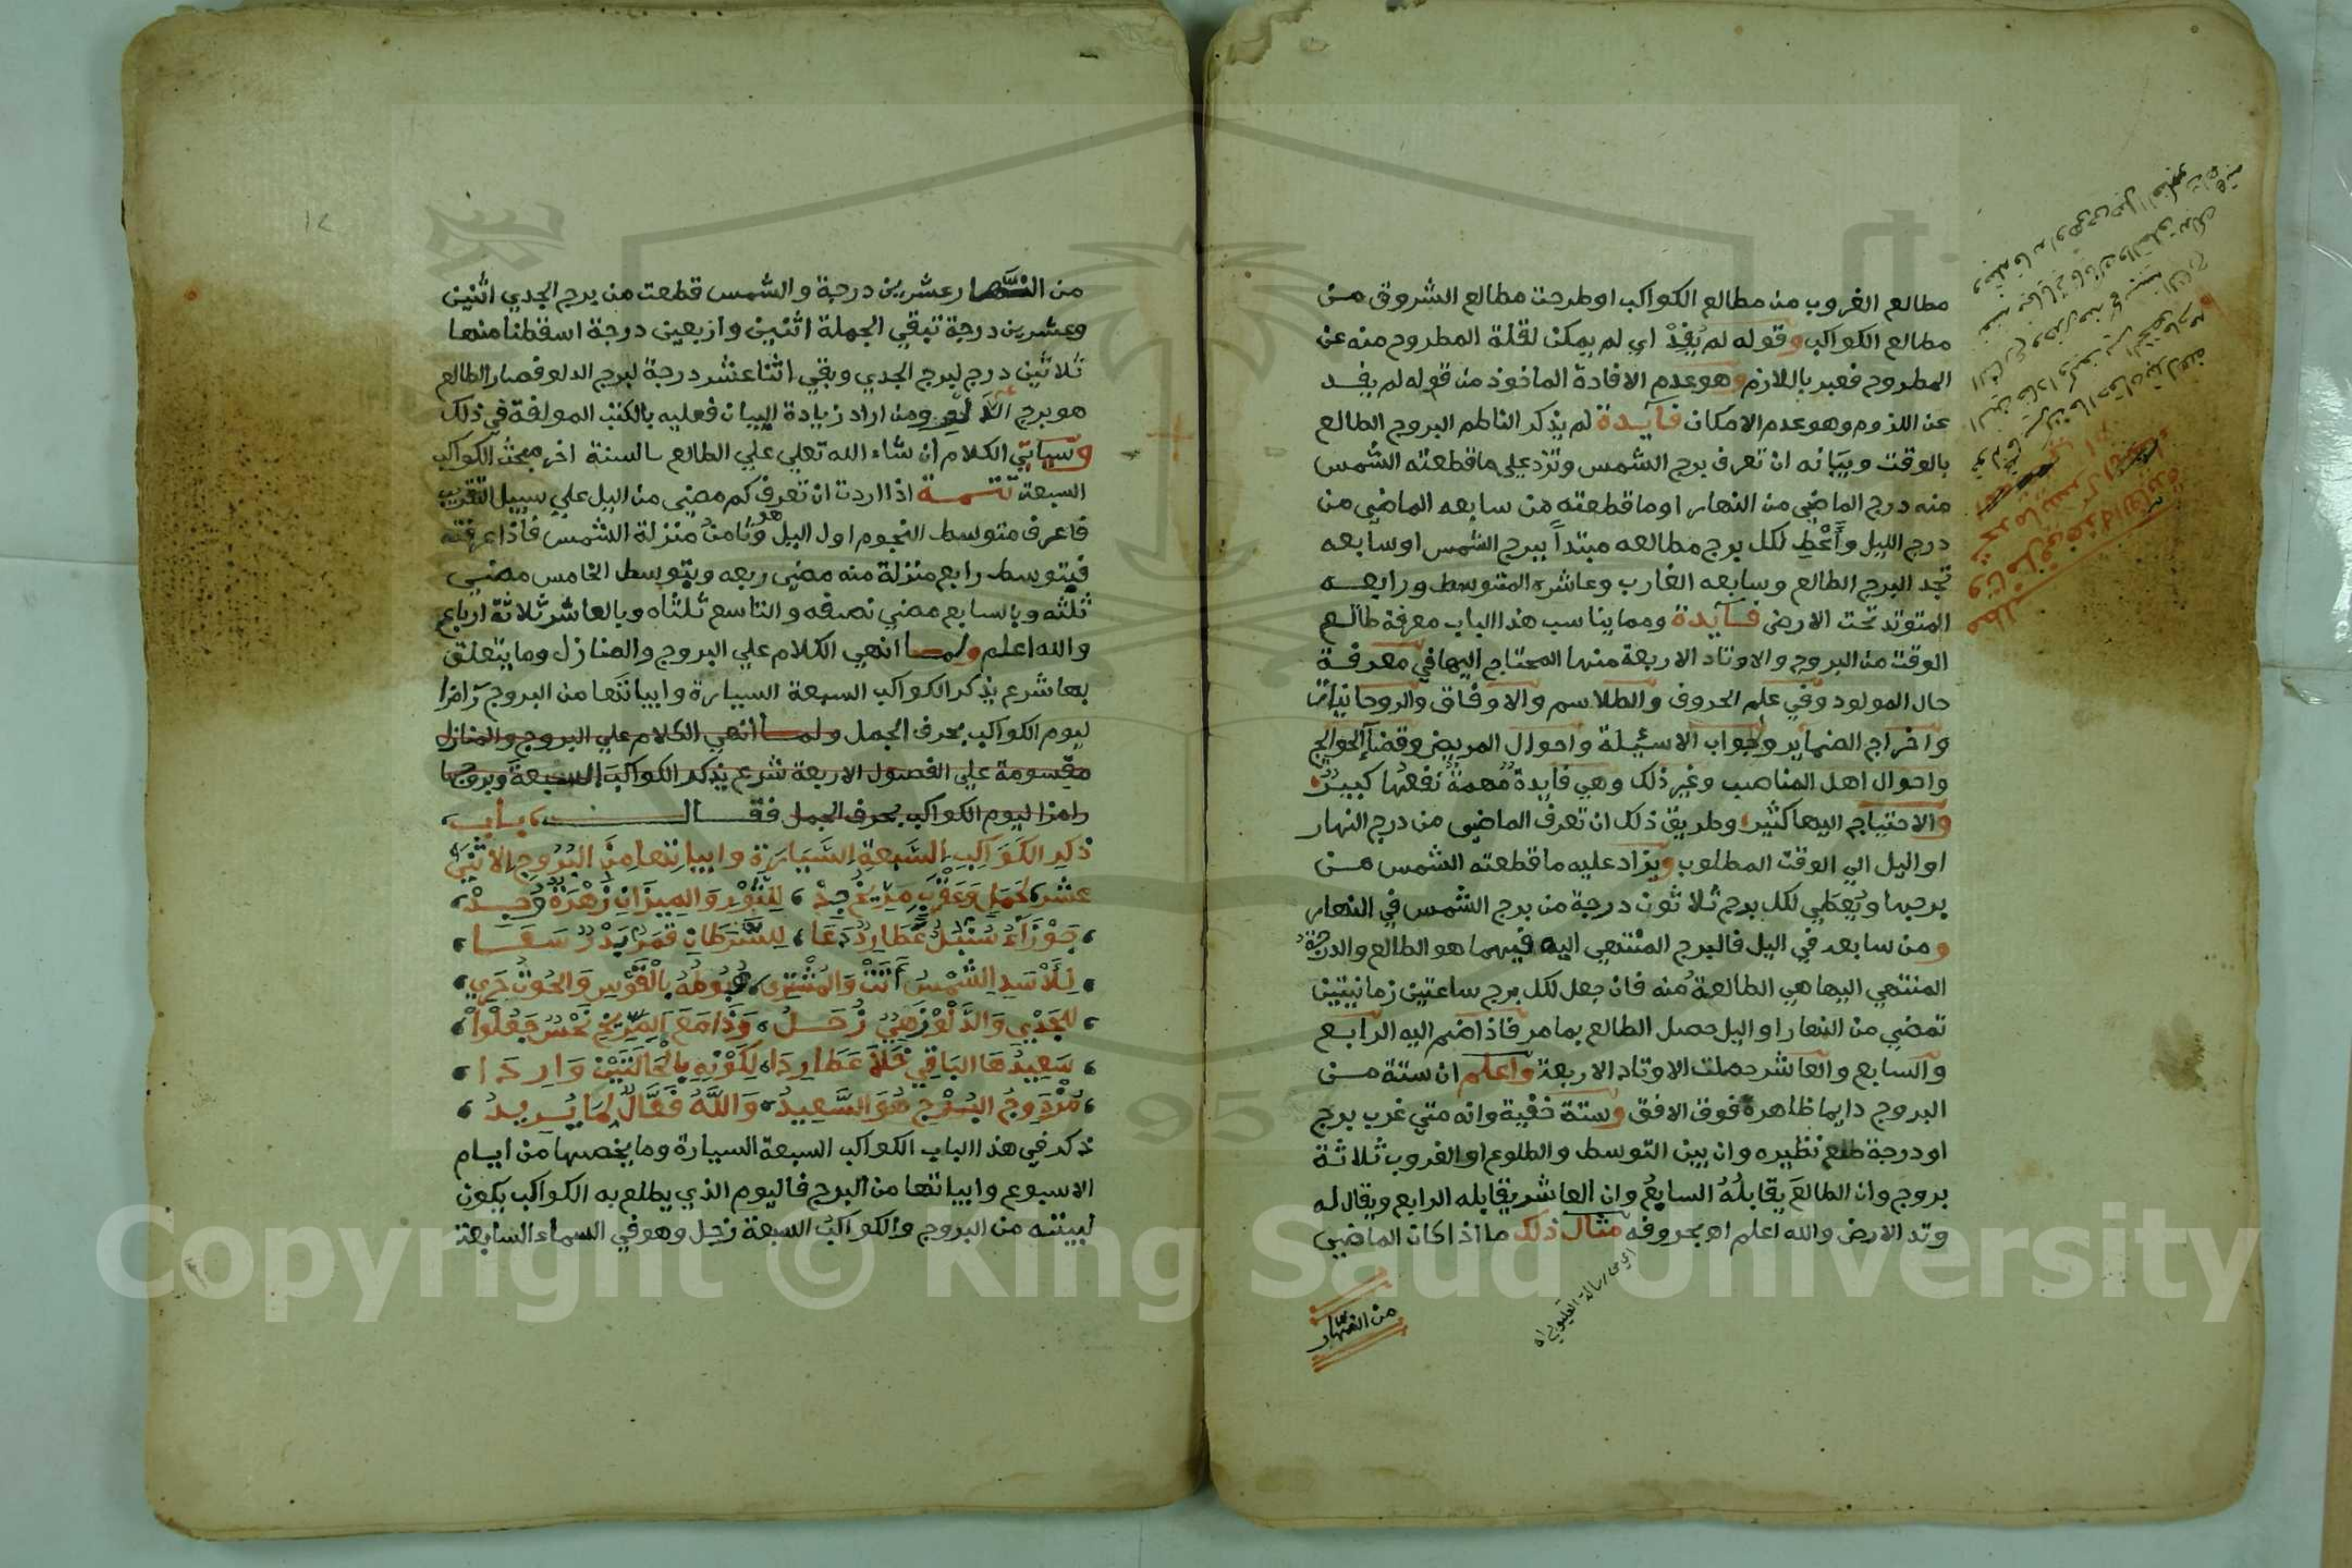 مطالع الغروب من مطالع الكواكب اوطرحت مطالع الشروق من
مطالع الكواكب وقوله لم يُفِدْ اي لم يمكن لقلة المطروح منه عن
المطروح فعبر باللازم وهو عدم الافادة الماخوذ من قوله لم يفد
عن اللزوم وهو عدم الامكان فايدة لم يذكر الناظم البروج الطالع
بالوقت وبيانه ان تعرف برج الشمس وتزد علي ما قطعته الشمس
منه درج الماضي من النهار او ما قطعته من سابعه الماضي من
درج الليل وأَعْطِ لكل برج مطالعه مبتدأ ببرج الشمس او سابعه
تجد البرج الطالع وسابعه الغارب وعاشره المتوسط ورابعه
المتوتد تحت الارض فايدة ومما يناسب هذا الباب معرفة طالع
الوقت من البروج والاوتاد الاربعة منها المحتاج اليها في معرفة
حال المولود وفي علم الحروف والطلاسم والاوفاق والروحانيات
واخراج الضماير وجواب الاسئيلة واحوال المريض وقضا الحوايج
واحوال اهل المناصب وغير ذلك وهي فايدة مهمة نفعها كبير
والاحتياج اليها كثير وطريق ذلك ان تعرف الماضي من درج النهار
او اليل الي الوقت المطلوب ويزاد عليه ما قطعته الشمس من
برجها ويُعطي لكل برج ثلاثون درجة من برج الشمس في النهار
ومن سابعه في اليل فالبرج المنتهي اليه فيهما هو الطالع والدرجة
المنتهي اليها هي الطالعة منه فان جعل لكل برج ساعتين زمانيتين
تمضي من النهار او اليل حصل الطالع بما مر فاذا ضم اليه الرابع
والسابع والعاشر حملت الاوتاد الاربعة واعلم ان ستة من
البروج دايما ظاهرة فوق الافق وستة خفية وانه متي غرب برج
او درجة طلع نظيره وان بين التوسط والطلوع او الغروب ثلاثة
بروج وان الطالع يقابله السابع وان العاشر يقابله الرابع ويقال له
وتد الارض والله اعلم اه بحروفه مثال ذلك ما اذا كان الماضي
اي من رسالة القليوبي اه
من النهار
١٢
من النهار عشرين درجة والشمس قطعت من برج الجدي اثنين
وعشرين درجة تبقي الجملة اثنين واربعين درجة اسقطنا منها
ثلاثين درج لبرج الجدي وبقي اثنا عشر درجة لبرج الدلو فصار الطالع
هو برج الدلو ومن اراد زيادة البيان فعليه بالكتب المولفة في ذلك
وسياتي الكلام ان شاء الله تعلي علي الطالع بالسنة اخر مبحث الكواكب
السبعة تتمة اذا اردت ان تعرف كم مضي من اليل علي سبيل التقريب
فاعرف متوسط النجوم اول اليل وهو ثامن منزلة الشمس فاذا عرفته
فبتوسط رابع منزلة منه مضي ربعه وبتوسط الخامس مضي
ثلثه وبالسابع مضي نصفه والتاسع ثلثاه وبالعاشر ثلاثة ارباع
والله اعلم ولما انهي الكلام علي البروج والمنازل وما يتعلق
بها شرع يذكر الكواكب السبعة السيارة وابياتها من البروج رامزا
ليوم الكواكب بحرف الجمل ولما انهي الكلام علي البروج والمنازل
مقسومة علي الفصول الاربعة شرع يذكر الكواكب السبعة وبروجها
رامزا ليوم الكواكب بحرف الجمل فقال باب
ذكر الكواكب السبعة السيارة وابياتها من البروج الاثني
عشر لحمل وعقرب مريخ جد لثور والميزان زهرة وجد
جوزاء سنبل عطارد دعا للسرطان قمر بدر سعا
للأسد الشمس أتت والمشتري هبوطه بالقوس والحوت حري
للجدي والدلو زهي زحل وذا مع المريخ نحس جعلوا
سعيدها الباقي خلا عطاردا لكونه بالحالتين واردا
مزدوج البرج هو السعيد والله فعال لما يريد
ذكر في هذا الباب الكواكب السبعة السيارة وما يخصها من ايام
الاسبوع وابياتها من البرج فاليوم الذي يطلع به الكواكب يكون
لبيته من البروج والكواكب السبعة زحل وهو في السماء السابعة